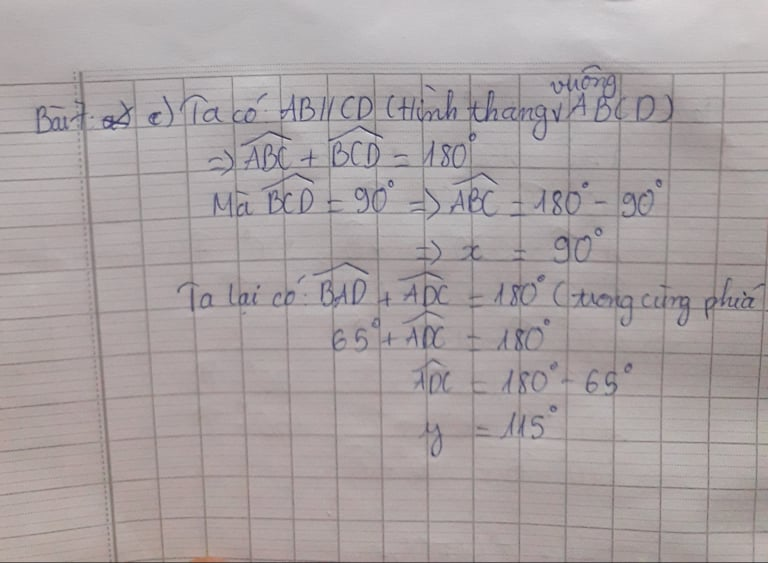 Bài 7. c) Ta có AB//CD (Hình thang vuông ABCD)
=> ABC + BCD = 180°
Mà BCD = 90° => ABC = 180° - 90°
=> x = 90°
Ta lại có: BAD + ADC = 180° (trong cùng phía
65° + ADC = 180°
ADC = 180° - 65°
y = 115°